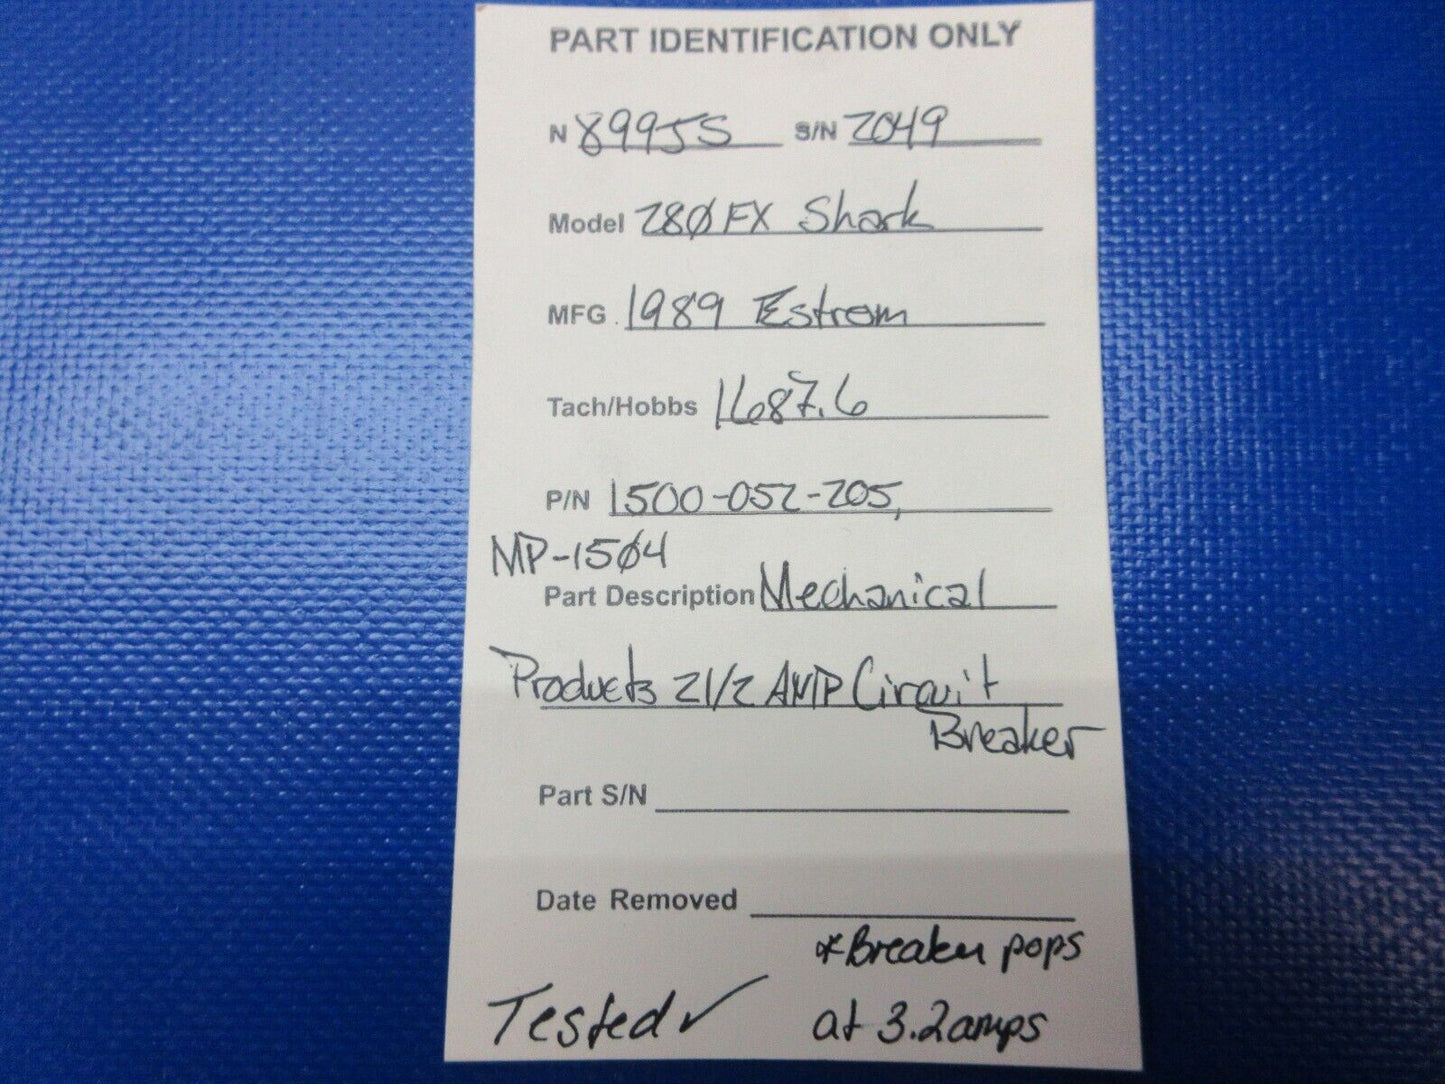 PART IDENTIFICATION ONLY
N 8995S S/N 2049
Model 280FX Shark
MFG. 1989 Estrom
Tach/Hobbs 1687.6
P/N 1500-052-205,
MP-1504
Part Description Mechanical
Products 21/2 AMP Circuit
Breaker
Part S/N
Date Removed
*Breaker pops
Tested✓ at 3.2amps